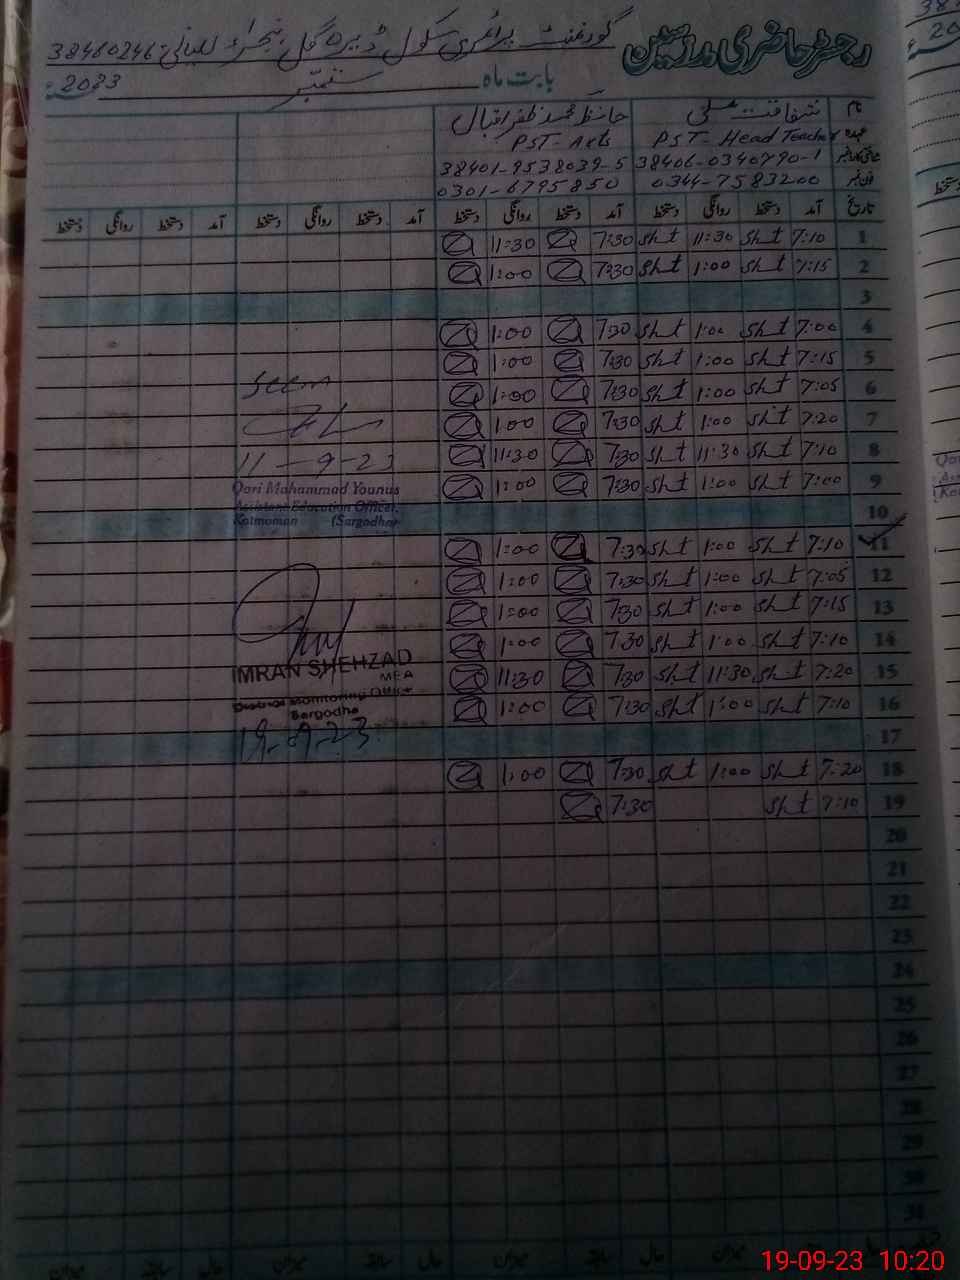 رجسٹر حاضری مدرسین گورنمنٹ پرائمری سکول ڈیرہ گل 38480246
بابت ماہ ستمبر 2023ء
نام شفاقت علی حافظ محمد ظفر اقبال
عہدہ PST-Head Teacher PST-Arts
38406-0340790-1 38401-9538039-5
فون نمبر 0344-7583200 0301-6795850
تاریخ آمد دستخط روانگی دستخط آمد دستخط روانگی دستخط آمد دستخط روانگی دستخط آمد دستخط روانگی دستخط
1 7:10 Sht 11:30 Sht 7:30 11:30
2 7:15 Sht 1:00 Sht 7:30 1:00
3
4 7:00 Sht 1:00 Sht 7:30 1:00
5 7:15 Sht 1:00 Sht 7:30 1:00
6 7:05 Sht 1:00 Sht 7:30 1:00
7 7:20 Sht 1:00 Sht 7:30 1:00
8 7:10 Sht 11:30 Sht 7:30 11:30
9 7:00 Sht 1:00 Sht 7:30 1:00
10
11 7:10 Sht 1:00 Sht 7:30 1:00
12 7:05 Sht 1:00 Sht 7:30 1:00
13 7:15 Sht 1:00 Sht 7:30 1:00
14 7:10 Sht 1:00 Sht 7:30 1:00
15 7:20 Sht 11:30 Sht 7:30 11:30
16 7:10 Sht 1:00 Sht 7:30 1:00
17
18 7:20 Sht 1:00 Sht 7:30 1:00
19 7:10 Sht 7:30
20
21
22
23
24
25
26
27
28
29
30
31
Seen
11-9-23
Qari Mohammad Younus
Assistant Education Officer,
Kotmoman (Sargodha)
IMRAN SHEHZAD
MEA
District Monitoring Officer
Sargodha
19-09-23
19-09-23 10:20